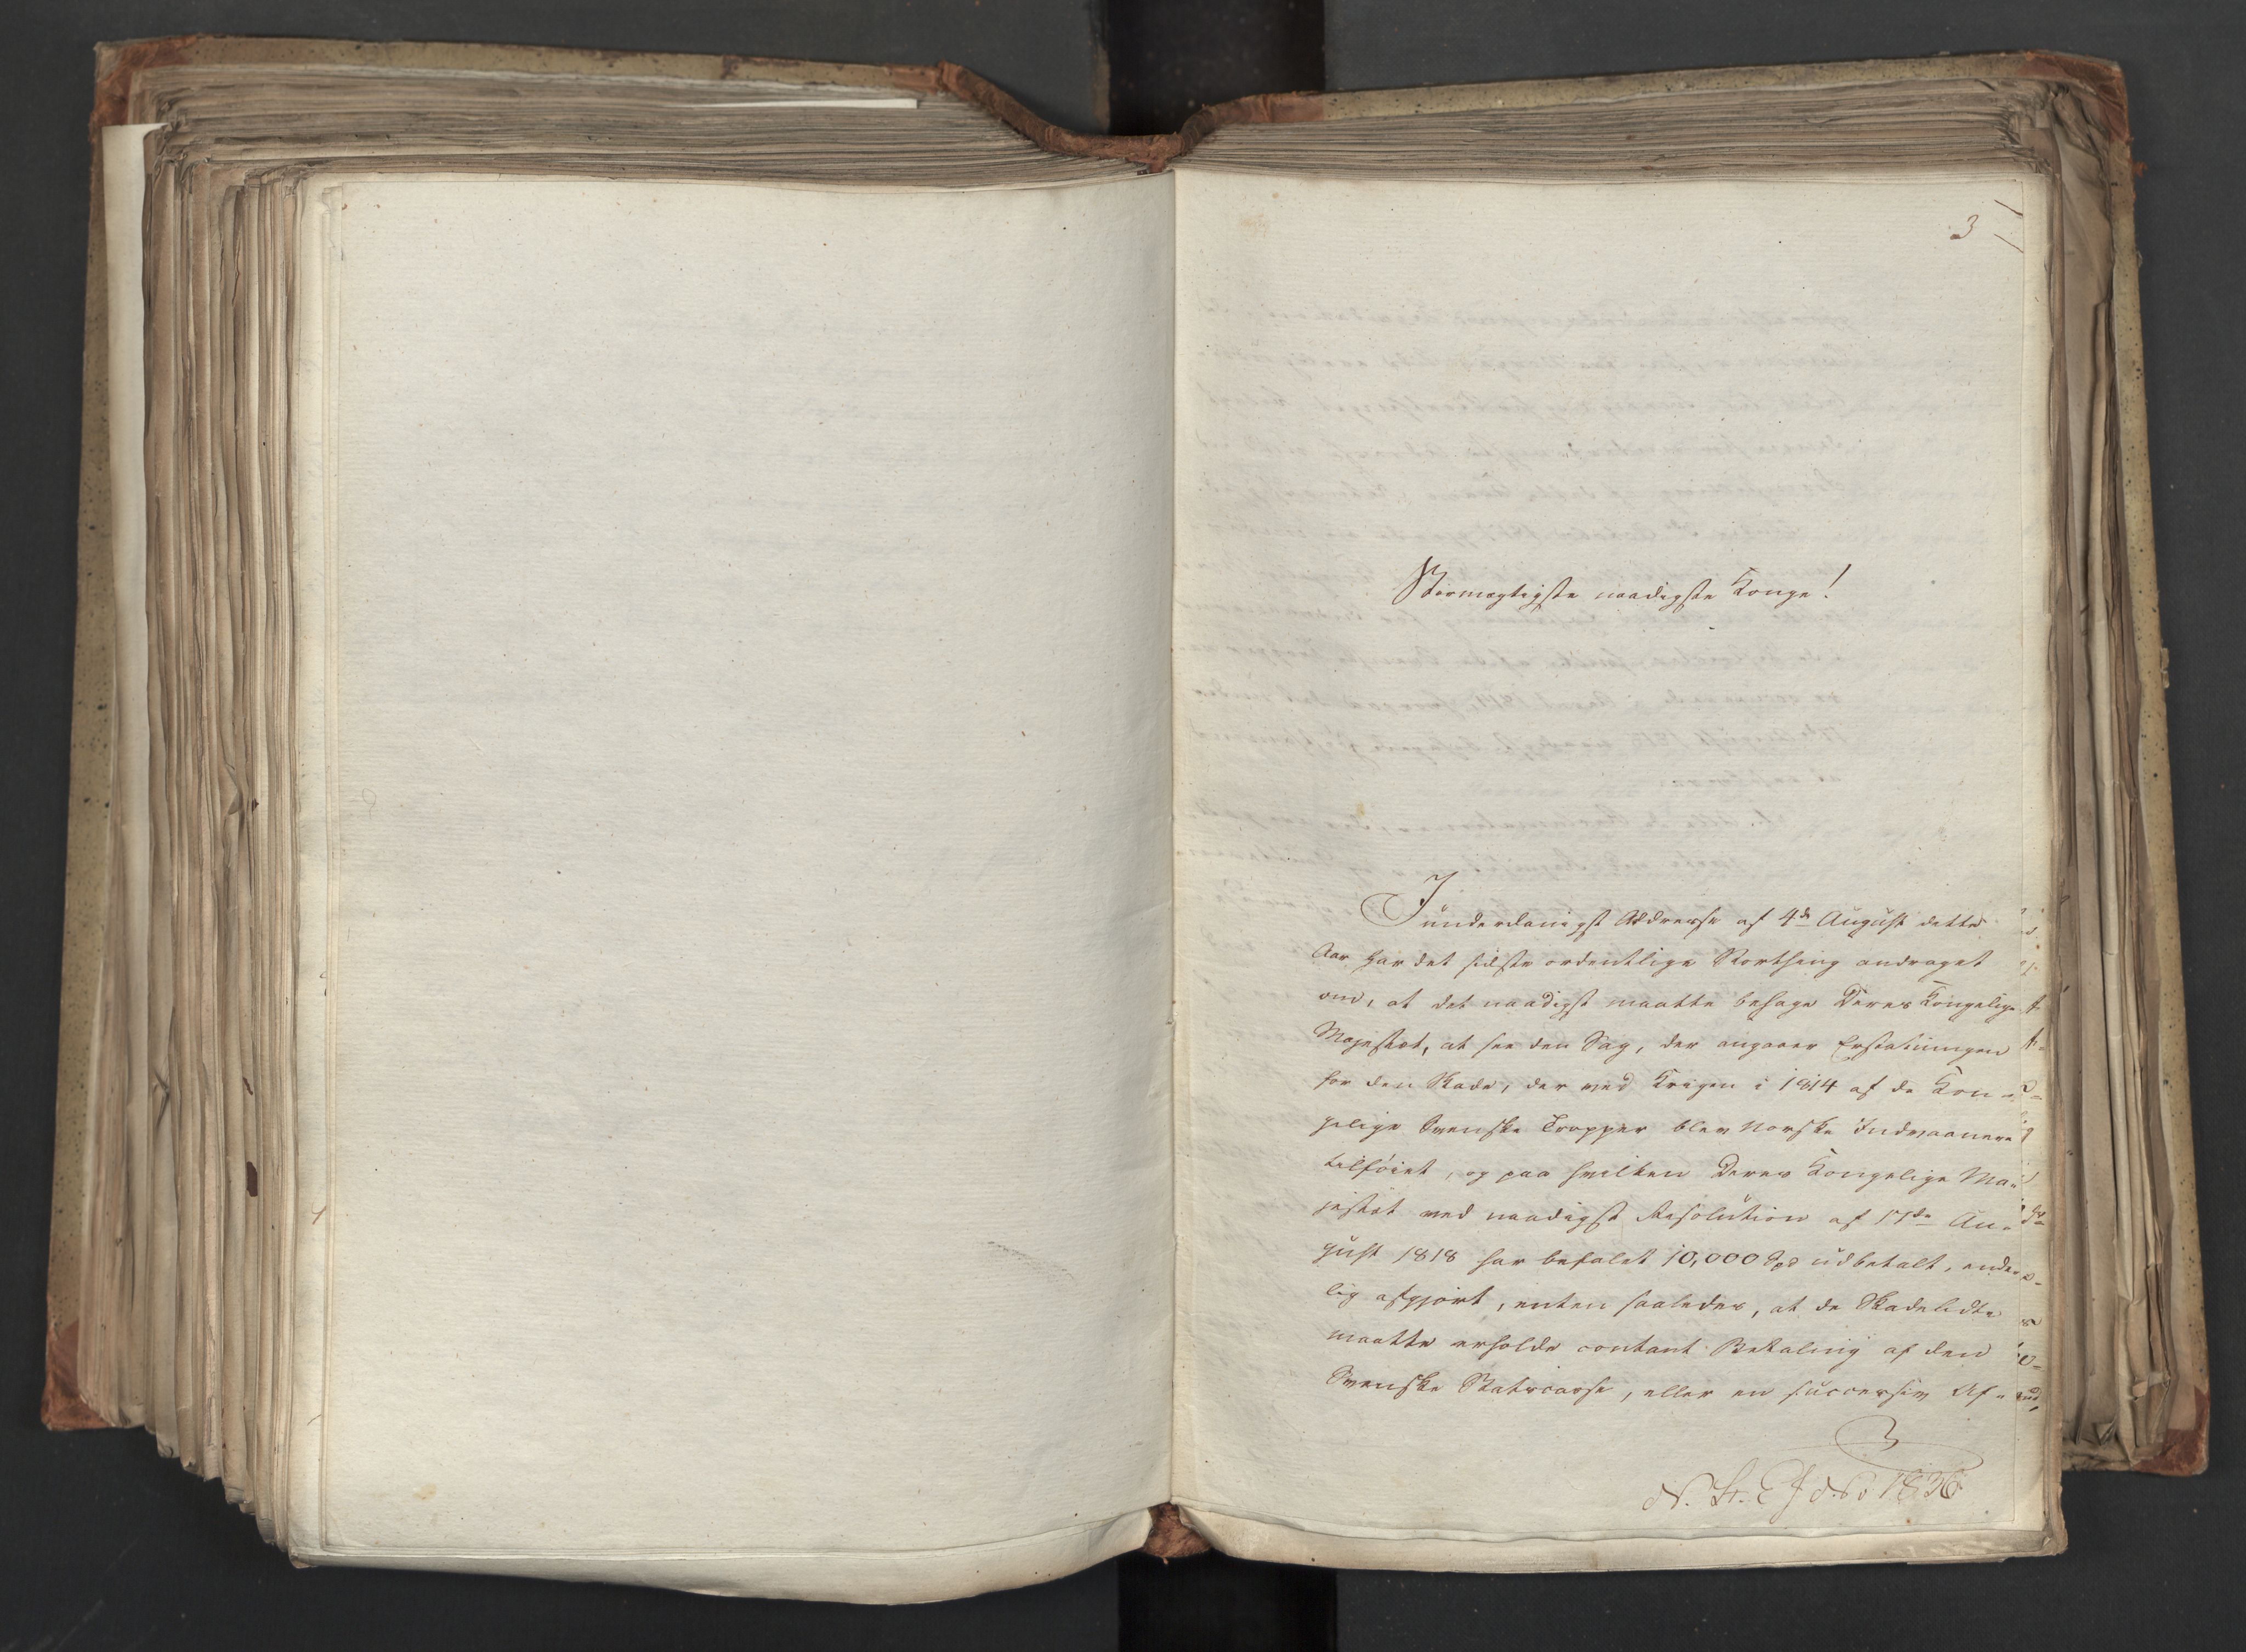 3
Stormægtigste naadigste Konge!
I underdanigst Addresse af 4de August dette
Aar har det sidste ordentlige Storthing andraget
om, at det naadigst maatte behage Deres Kongelige
Majestæt, at see den Sag, der angaaer Erstatningen
for den Skade, der ved Krigen i 1814 af de Kon-
gelige Svenske Tropper blev Norske Indvaanere
tilföiet, og paa hvilken Deres Kongelige Ma-
jestæt ved naadigst Resolution af 17de Au-
gust 1818 har befalet 10,000 Spd udbetalt, ende-
lig afgjort, enten saaledes, at de Skadelidte
maatte erholde contant Betaling af den
Svenske Statscasse, eller en successiv Af-
N. St. E. J. No 1836